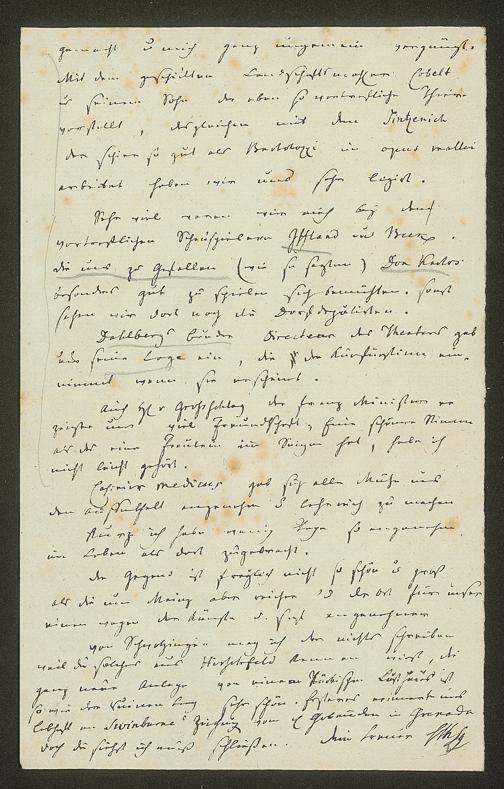 gemacht u mich ganz ungemein vergnügt.
Mit dem geschickten Landschaftsmahler Cobelt
u seinem Sohn der eben so vortreffliche Thiere
vorstellt, desgleichen mit dem Sintzenich
der schier so gut als Bartolozzi in opus mallei
arbeitet haben wir uns sehr
Sehr viel waren wir auch bey den
vortrefflichen Schauspielern Iffland u Beck.
die uns zu Gefallen (wie sie sagten) Don Karlos
besonders gut zu spielen sich bemühten. sonst
sahen wir dort noch die Dorfdeputirten.
Dahlbergs bruder Directeur des Theaters gab
uns seine Loge ein, die der Kurfürstinn ein-
nimmt wenn sie erscheint.
Auch H. v Grosschlag der franz Minister er
zeigte uns viel Freundschaft, Eine schönere Stimme
als die eine Fräulein im Singen hat, habe ich
nicht leicht gehört.
medicus gab sich alle Mühe uns
den auffenthalt angenehm u lehrreich zu machen
Kurz ich habe wenig Tage so angenehm
im Leben als dort zugebracht.
die Gegend ist freylich nicht so schön u groß
als die um Mainz aber reicher u der ort für unser
einen wegen der Künste u. angenehmer
von Schwetzingen mag ich dir nichts schreiben
weil du solches aus Hirschfeld kennen wirst, die
ganz neue Anlage von einem Türkischen Lusthaus ist
so wie der Ruinen Berg sehr schön. Ersteres erinnert uns
lebhaft an Swinburne's Zeichnung von Gebäuden in Grenada
doch du siehst ich muß schließen. dein treuer